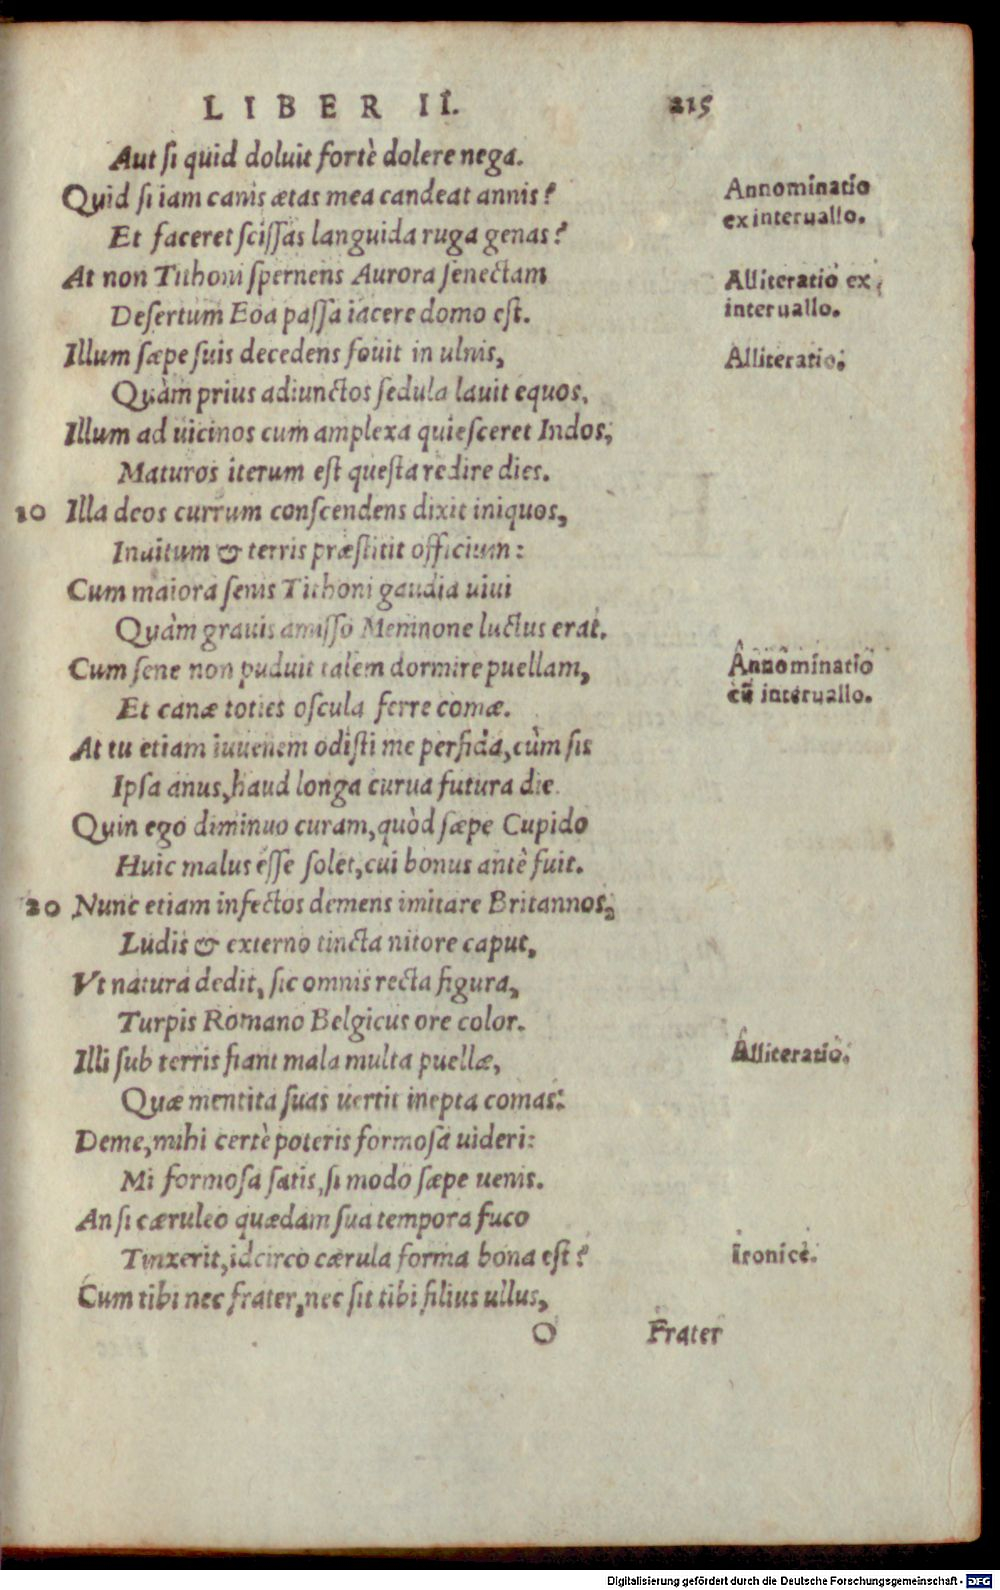 LIBER II. 215
Aut si quid doluit fortè dolere nega.
Quid si iam canis ætas mea candeat annis?
Annominatio
ex interuallo.
Et faceret scissas languida ruga genas?
At non Tithoni spernens Aurora senectam
Alliteratio ex
interuallo.
Desertum Eoa passa iacere domo est.
Illum sæpe suis decedens fouit in ulnis,
Alliteratio.
Quàm prius adiunctos sedula lauit equos.
Illum ad uicinos cum amplexa quiesceret Indos,
Maturos iterum est questa redire dies.
10 Illa deos currum conscendens dixit iniquos,
Inuitum & terris præstitit officium:
Cum maiora senis Tithoni gaudia uiui
Quàm grauis amisso Memnone luctus erat.
Cum sene non puduit talem dormire puellam,
Annominatio
cū interuallo.
Et canæ toties oscula ferre comæ.
At tu etiam iuuenem odisti me perfida, cùm sis
Ipsa anus, haud longa curua futura die.
Quin ego diminuo curam, quòd sæpe Cupido
Huic malus esse solet, cui bonus antè fuit.
20 Nunc etiam infectos demens imitare Britannos,
Ludis & externo tincta nitore caput,
Vt natura dedit, sic omnis recta figura,
Turpis Romano Belgicus ore color.
Illi sub terris fiant mala multa puellæ,
Alliteratio.
Quæ mentita suas uertit inepta comas:
Deme, mihi certè poteris formosa uideri:
Mi formosa satis, si modo sæpe uenis.
An si cæruleo quædam sua tempora fuco
Tinxerit, idcirco cærula forma bona est?
Ironicè.
Cum tibi nec frater, nec sit tibi filius ullus,
O Frater
Digitalisierung gefördert durch die Deutsche Forschungsgemeinschaft - DFG